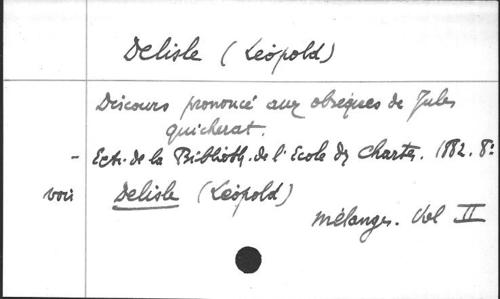 Delisle (Léopold)
Discours prononcé aux obsèques de Jules
quicherat.
- Ext. de la Biblioth. de l'Ecole des Chartes. 1882. 8º
voir Delisle (Léopold)
mélanges. Vol II